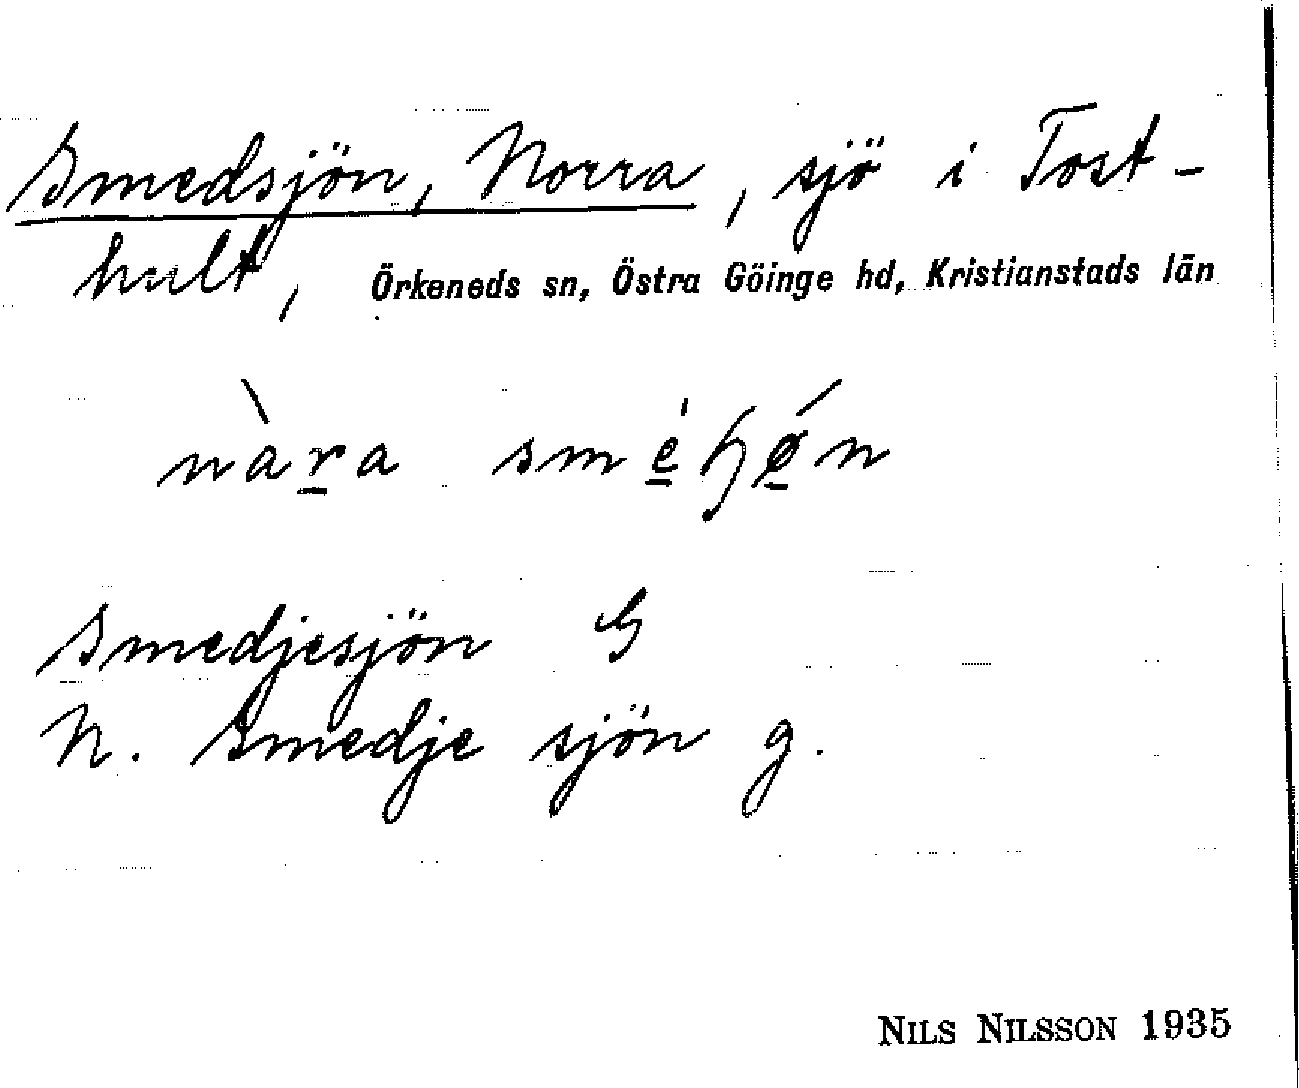 Smedsjön, Norra, sjö i Tost-
hult, Örkeneds sn, Östra Göinge hd, Kristianstads län
nàra sméɧǿ̱n
Smedjesjön G
N. Smedje sjön g.
NILS NILSSON 1935